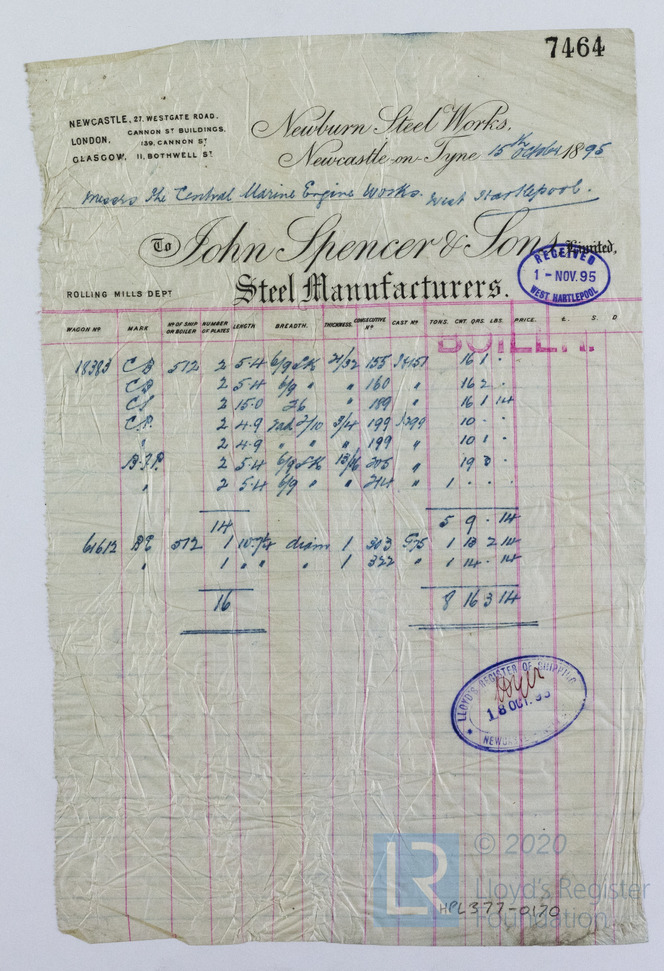 7464
NEWCASTLE, 27, WESTGATE ROAD.
LONDON, CANNON ST BUILDINGS, 139, CANNON ST
GLASGOW, 11, BOTHWELL ST
Newburn Steel Works,
Newcastle-on-Tyne 15th October 1895
Messrs The Central Marine Engine Works. West Hartlepool.
To John Spencer & Sons Limited,
RECEIVED
1 - NOV. 95
WEST HARTLEPOOL
ROLLING MILLS DEPT
Steel Manufacturers.
WAGON No MARK No OF SHIP OR BOILER NUMBER OF PLATES LENGTH BREADTH. THICKNESS. CONSECUTIVE No CAST No TONS. CWT. QRS. LBS. PRICE. £. S. D
BOILER.
18383 CB 512 2 5.4 6/9 21/32 155 16 1 "
CB 2 5.4 6/9 " " 160 " 16 2 "
2 15.0 " 189 " 16 1 14
2 4.9 3/4 199 10 " "
" 2 4.9 " " " 199 " 10 1 "
2 5.4 13/16 19 0 "
" 2 5.4 6/9 " " 214 " 1 " " "
14 5 9 " 14
512 1 diam 1 303 1 13 2 14
" 1 " " " 1 322 " 1 14 " 14
16 8 16 3 14
LLOYD'S REGISTER OF SHIPPING
18 OCT. 95
© 2020
LR Lloyd's Register
Foundation
HPL377-0170